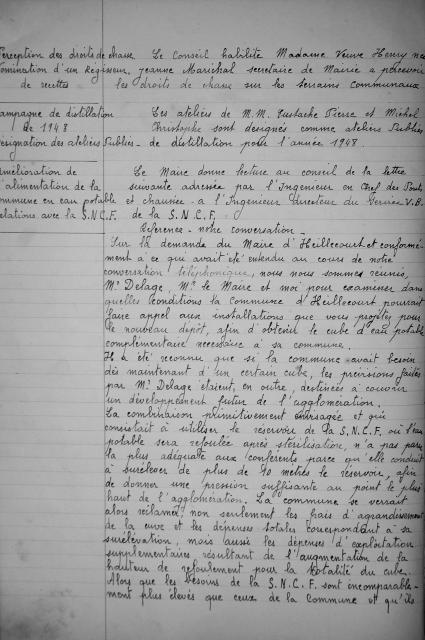 Perception des droits de chasse. Le Conseil habilite Madame Veuve Henry née
Nomination d'un Régisseur. Jeanne Maréchal secrétaire de Mairie a percevoir
de recettes les droits de chasse sur les terrains Communaux
Campagne de distillation Les ateliers de M.M. Eustache Pierre et Michel
de 1948 Christophe sont designés comme ateliers Publics
Désignation des ateliers Publics - de distillation pour l'année 1948.
Amélioration de Le Maire donne lecture au conseil de la lettre
l'alimentation de la suivante adressée par l'Ingenieur en Chef des Ponts
Commune en eau potable et chaussée - a l'Ingenieur directeur du Service V.B.
relations avec la S.N.C.F. de la S.N.C.F.
Reference - notre conversation -
Sur la demande du Maire d'Heillecourt et conformé-
ment à ce qui avait été entendu au cours de notre
conversation téléphonique, nous nous sommes réunis,
Mr Delage, Mr le Maire et moi pour examiner dans
quelles conditions la Commune d'Heillecourt pourrait
faire appel aux installations que vous projetez pour
le nouveau depot, afin d'obtenir le cube d'eau potable
complémentaire necessaire à sa commune.
Il a été reconnu que si la commune avait besoin
dès maintenant d'un certain cube, les prévisions faites
par Mr Delage étaient, en outre, destinées à couvrir
un développement futur de l'agglomération.
La combinaison primitivement envisagée et qui
consistait à utiliser le réservoir de la S.N.C.F. où l'eau
potable sera refoulée après stérilisation, n'a pas paru
la plus adéquate aux conférents parce qu'elle conduit
à surélever de plus de 10 mètres le réservoir, afin
de donner une pression suffisante au point le plus
haut de l'agglomération. La commune se verrait
alors réclamer non seulement les frais d'agrandissement
de la cuve et les dépenses totales correspondant à sa
surélévation, mais aussi les dépenses d'exploitation
supplémentaires résultant de l'augmentation de la
hauteur de refoulement pour la totalité du cube.
Alors que les besoins de la S.N.C.F. sont incomparable-
ment plus élevés que ceux de la Commune et qu'ils